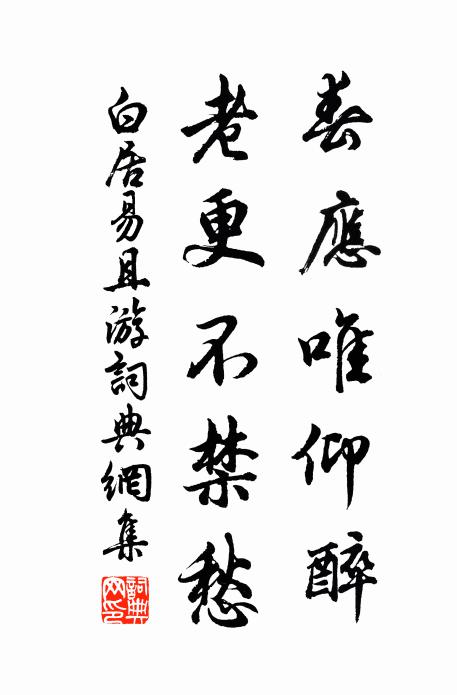 春應唯仰醉
老更不禁愁
白居易且游詞典網集
詞典网印